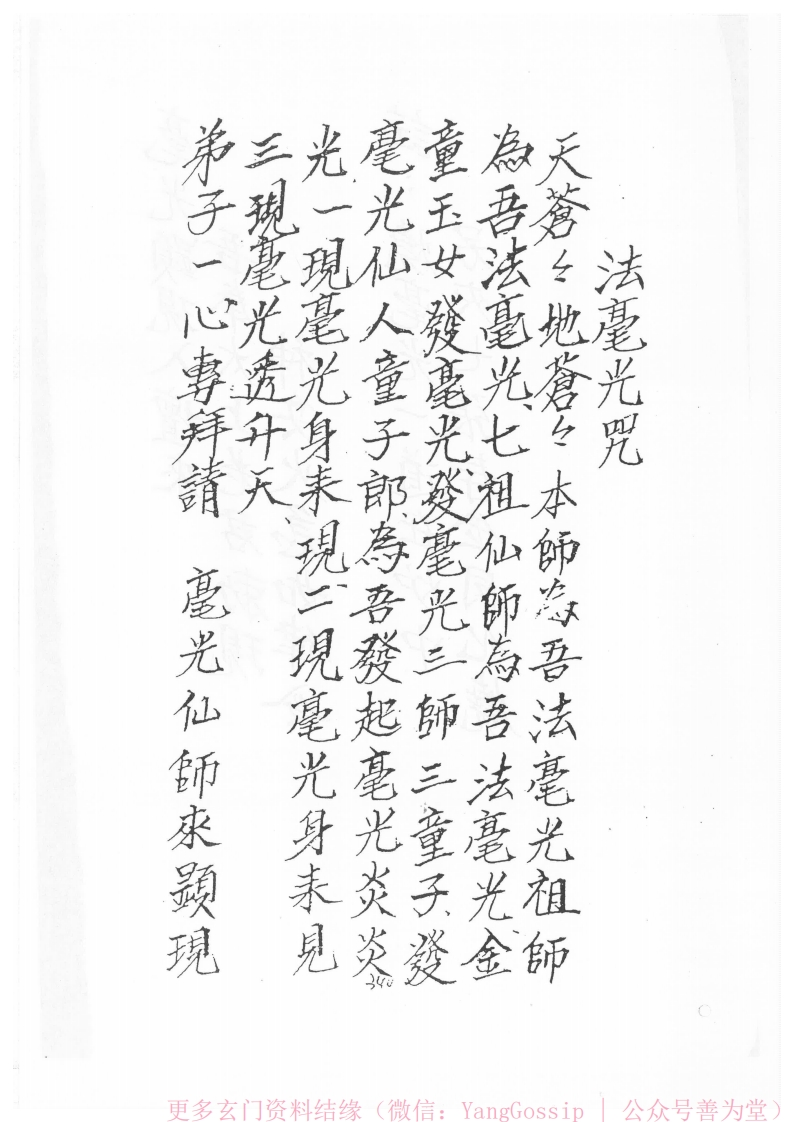 法毫光咒
天蒼々地蒼々本師為吾法毫光祖師
為吾法毫光、七祖仙師為吾法毫光、金
童玉女發毫光、發毫光三師三童子、發
毫光仙人童子郎、為吾發起毫光炎炎
340
光一現毫光身未現、二現毫光身未見
三現毫光透升天、
弟子一心專拜請 毫光仙師來顯現
更多玄门资料结缘（微信：YangGossip | 公众号善为堂）